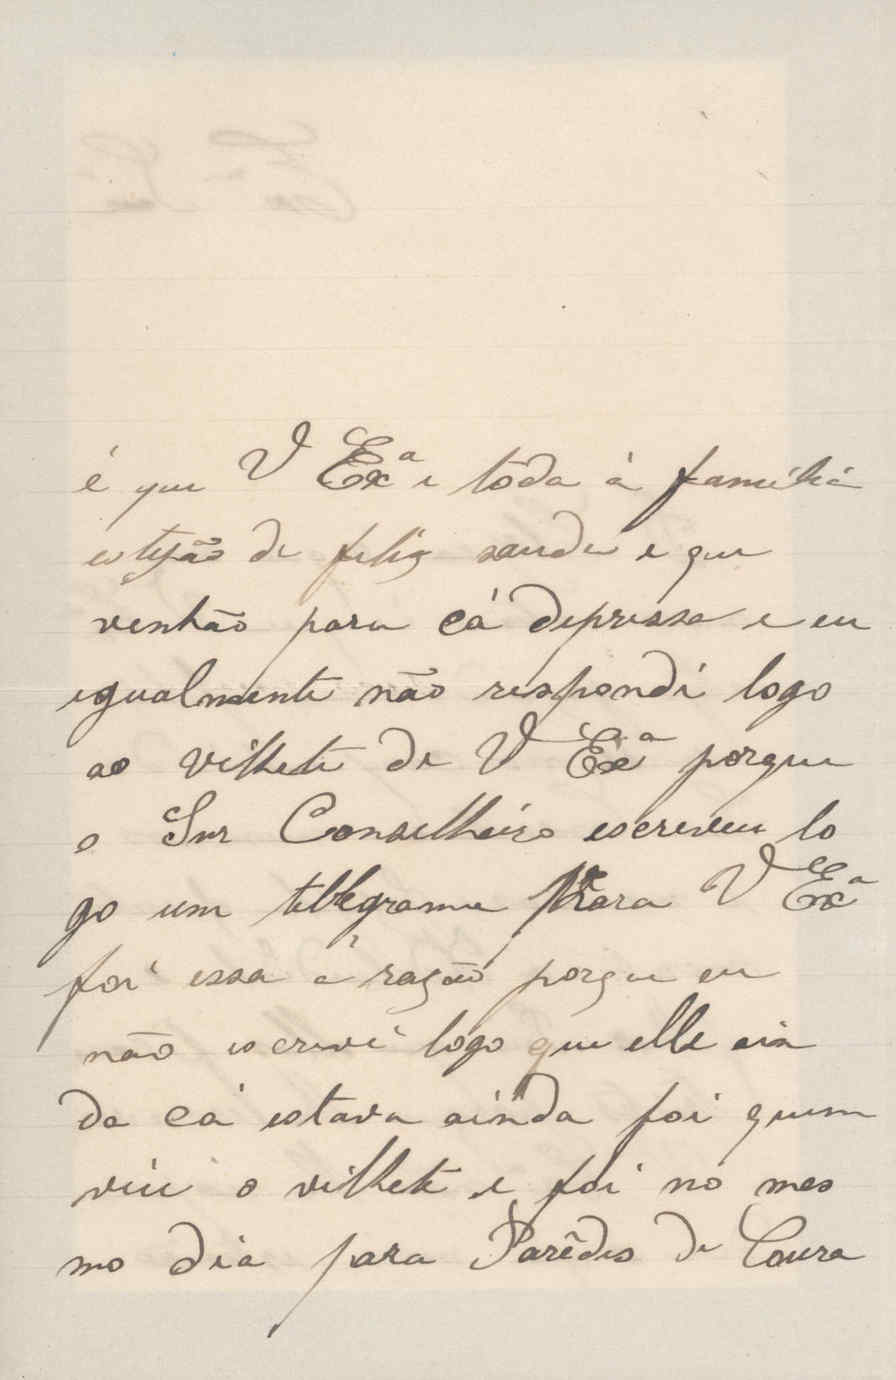 é que V Exª e tôda á família
estejão de feliz saude e que
venhão para cá depressa e eu
igualmente não respondi logo
ao vilhete de V Exª porque
o Snr Conselheiro escreveu lo
go um tellegrama para V Exª
foi essa a ração porque eu
não escrevi logo que elle ain
da cá estava ainda foi quem
viu o vilhete e foi no mes
mo dia para Parêdes de Coura